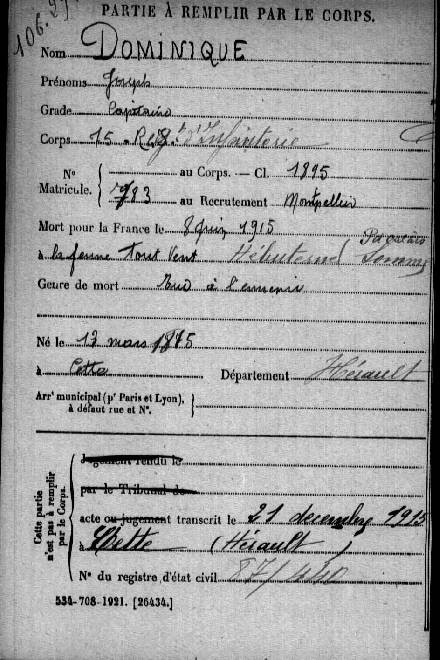 PARTIE À REMPLIR PAR LE CORPS.
Nom DOMINIQUE
Prénoms Joseph
Grade Capitaine
Corps 15 Rég.t d'Infanterie
N° Matricule. { au Corps. — Cl. 1895
783 au Recrutement Montpellier
Mort pour la France le 8 Juin 1915
à la ferme Tout Vent Hébuterne (
Genre de mort Tué à l'ennemi
Né le 13 mars 1875
à Cette Département Hérault
Arr' municipal (p' Paris et Lyon), à défaut rue et N°.
Cette partie n'est pas à remplir par le Corps.
Jugement rendu le
par le Tribunal de
acte ou jugement transcrit le 21 décembre 1915
à Cette (Hérault)
N° du registre d'état civil
534-708-1921. [26434.]